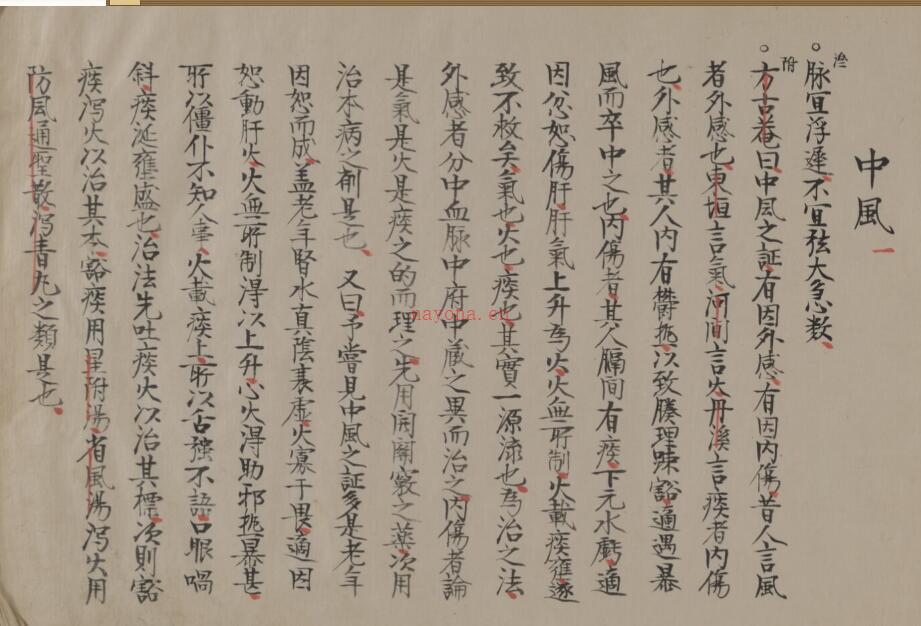 中風 一
脉宜浮遲不宜弦大急数
附 方古菴曰中風之証有因外感有因内傷昔人言風
者外感也東垣言氣河間言火丹溪言痰者内傷
也外感者其人内有欝熱以致腠理踈豁適遇暴
風而卒中之也内傷者其人膈間有痰下元水虧適
因忿怒傷肝肝氣上升為火火無所制火載痰壅遂
致不救矣氣也火也痰也其實一源流也為治之法
外感者分中血脉中府中藏之異而治之内傷者論
是氣是火是痰之的而理之先用開關竅之薬次用
治本病之剤是也 又曰予嘗見中風之証多是老年
因怒而成盖老年腎水真陰衰虚火寡于畏適因
怒動肝火火無所制得以上升心火得助邪熱暴甚
所以僵仆不知人事火載痰上所以舌強不語口眼喎
斜痰涎壅盛也治法先吐痰火以治其標次則豁
痰泻火以治其本豁痰用星附湯省風湯泻火用
防風通聖散泻青丸之類是也
nayona.cn